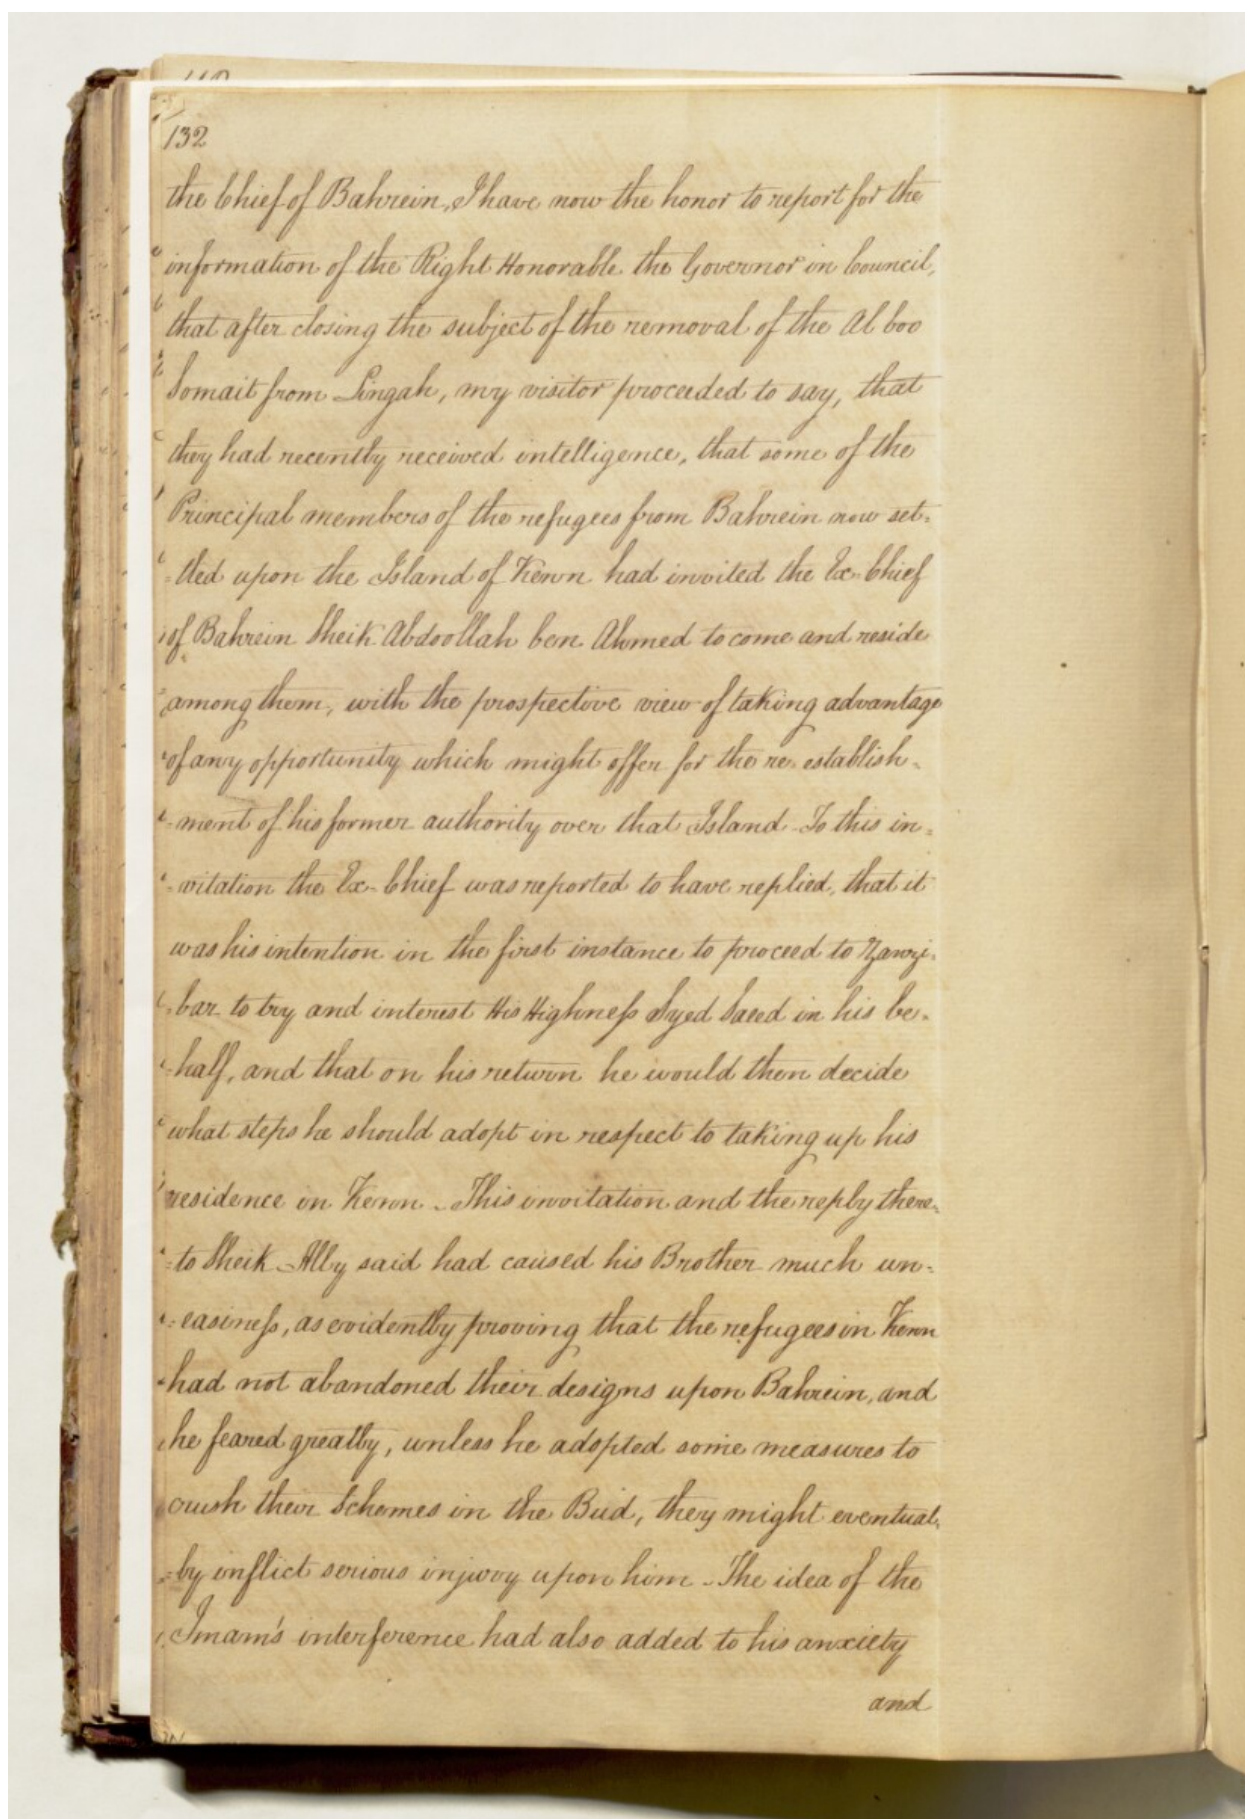 132
the Chief of Bahrein, I have now the honor to report for the
information of the Right Honorable the Governor in Council,
that after closing the subject of the removal of the Al boo
Somait from Lingah, my visitor proceeded to say, that
they had recently received intelligence, that some of the
Principal members of the refugees from Bahrein now set-
-tled upon the Island of Kenn had invited the Ex-Chief
of Bahrein Sheik Abdoollah ben Ahmed to come and reside
among them, with the prospective view of taking advantage
of any opportunity which might offer for the re-establish-
-ment of his former authority over that Island - To this in-
-vitation the Ex-Chief was reported to have replied, that it
was his intention in the first instance to proceed to Zanzi-
-bar to try and interest His Highness Syed Saeed in his be-
-half, and that on his return he would then decide
what steps he should adopt in respect to taking up his
residence in Kenn - This invitation and the reply there-
-to Sheik Ally said had caused his Brother much un-
-easiness, as evidently proving that the refugees in Kenn
had not abandoned their designs upon Bahrein, and
he feared greatly, unless he adopted some measures to
crush their Schemes in the Bud, they might eventual-
-ly inflict serious injury upon him - The idea of the
Imam's interference had also added to his anxiety
and